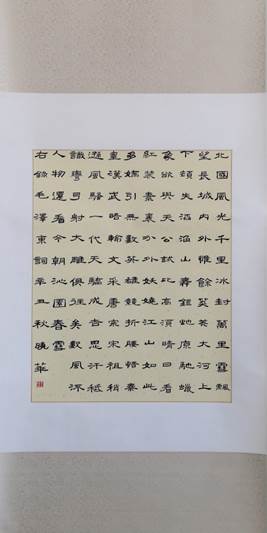 北國風光千里冰封萬里雪飄
望長城內外惟餘莽莽大河上
下頓失滔滔山舞銀蛇原馳蠟
象欲與天公試比高須晴日看
紅裝素裹分外妖嬈江山如此
多嬌引無數英雄競折腰惜秦
皇漢武略輸文采唐宗宋祖稍
遜風騷一代天驕成吉思汗秪
識彎弓射大雕俱往矣數風流
人物還看今朝沁園春雪
右錄毛澤東詞辛丑秋曉華